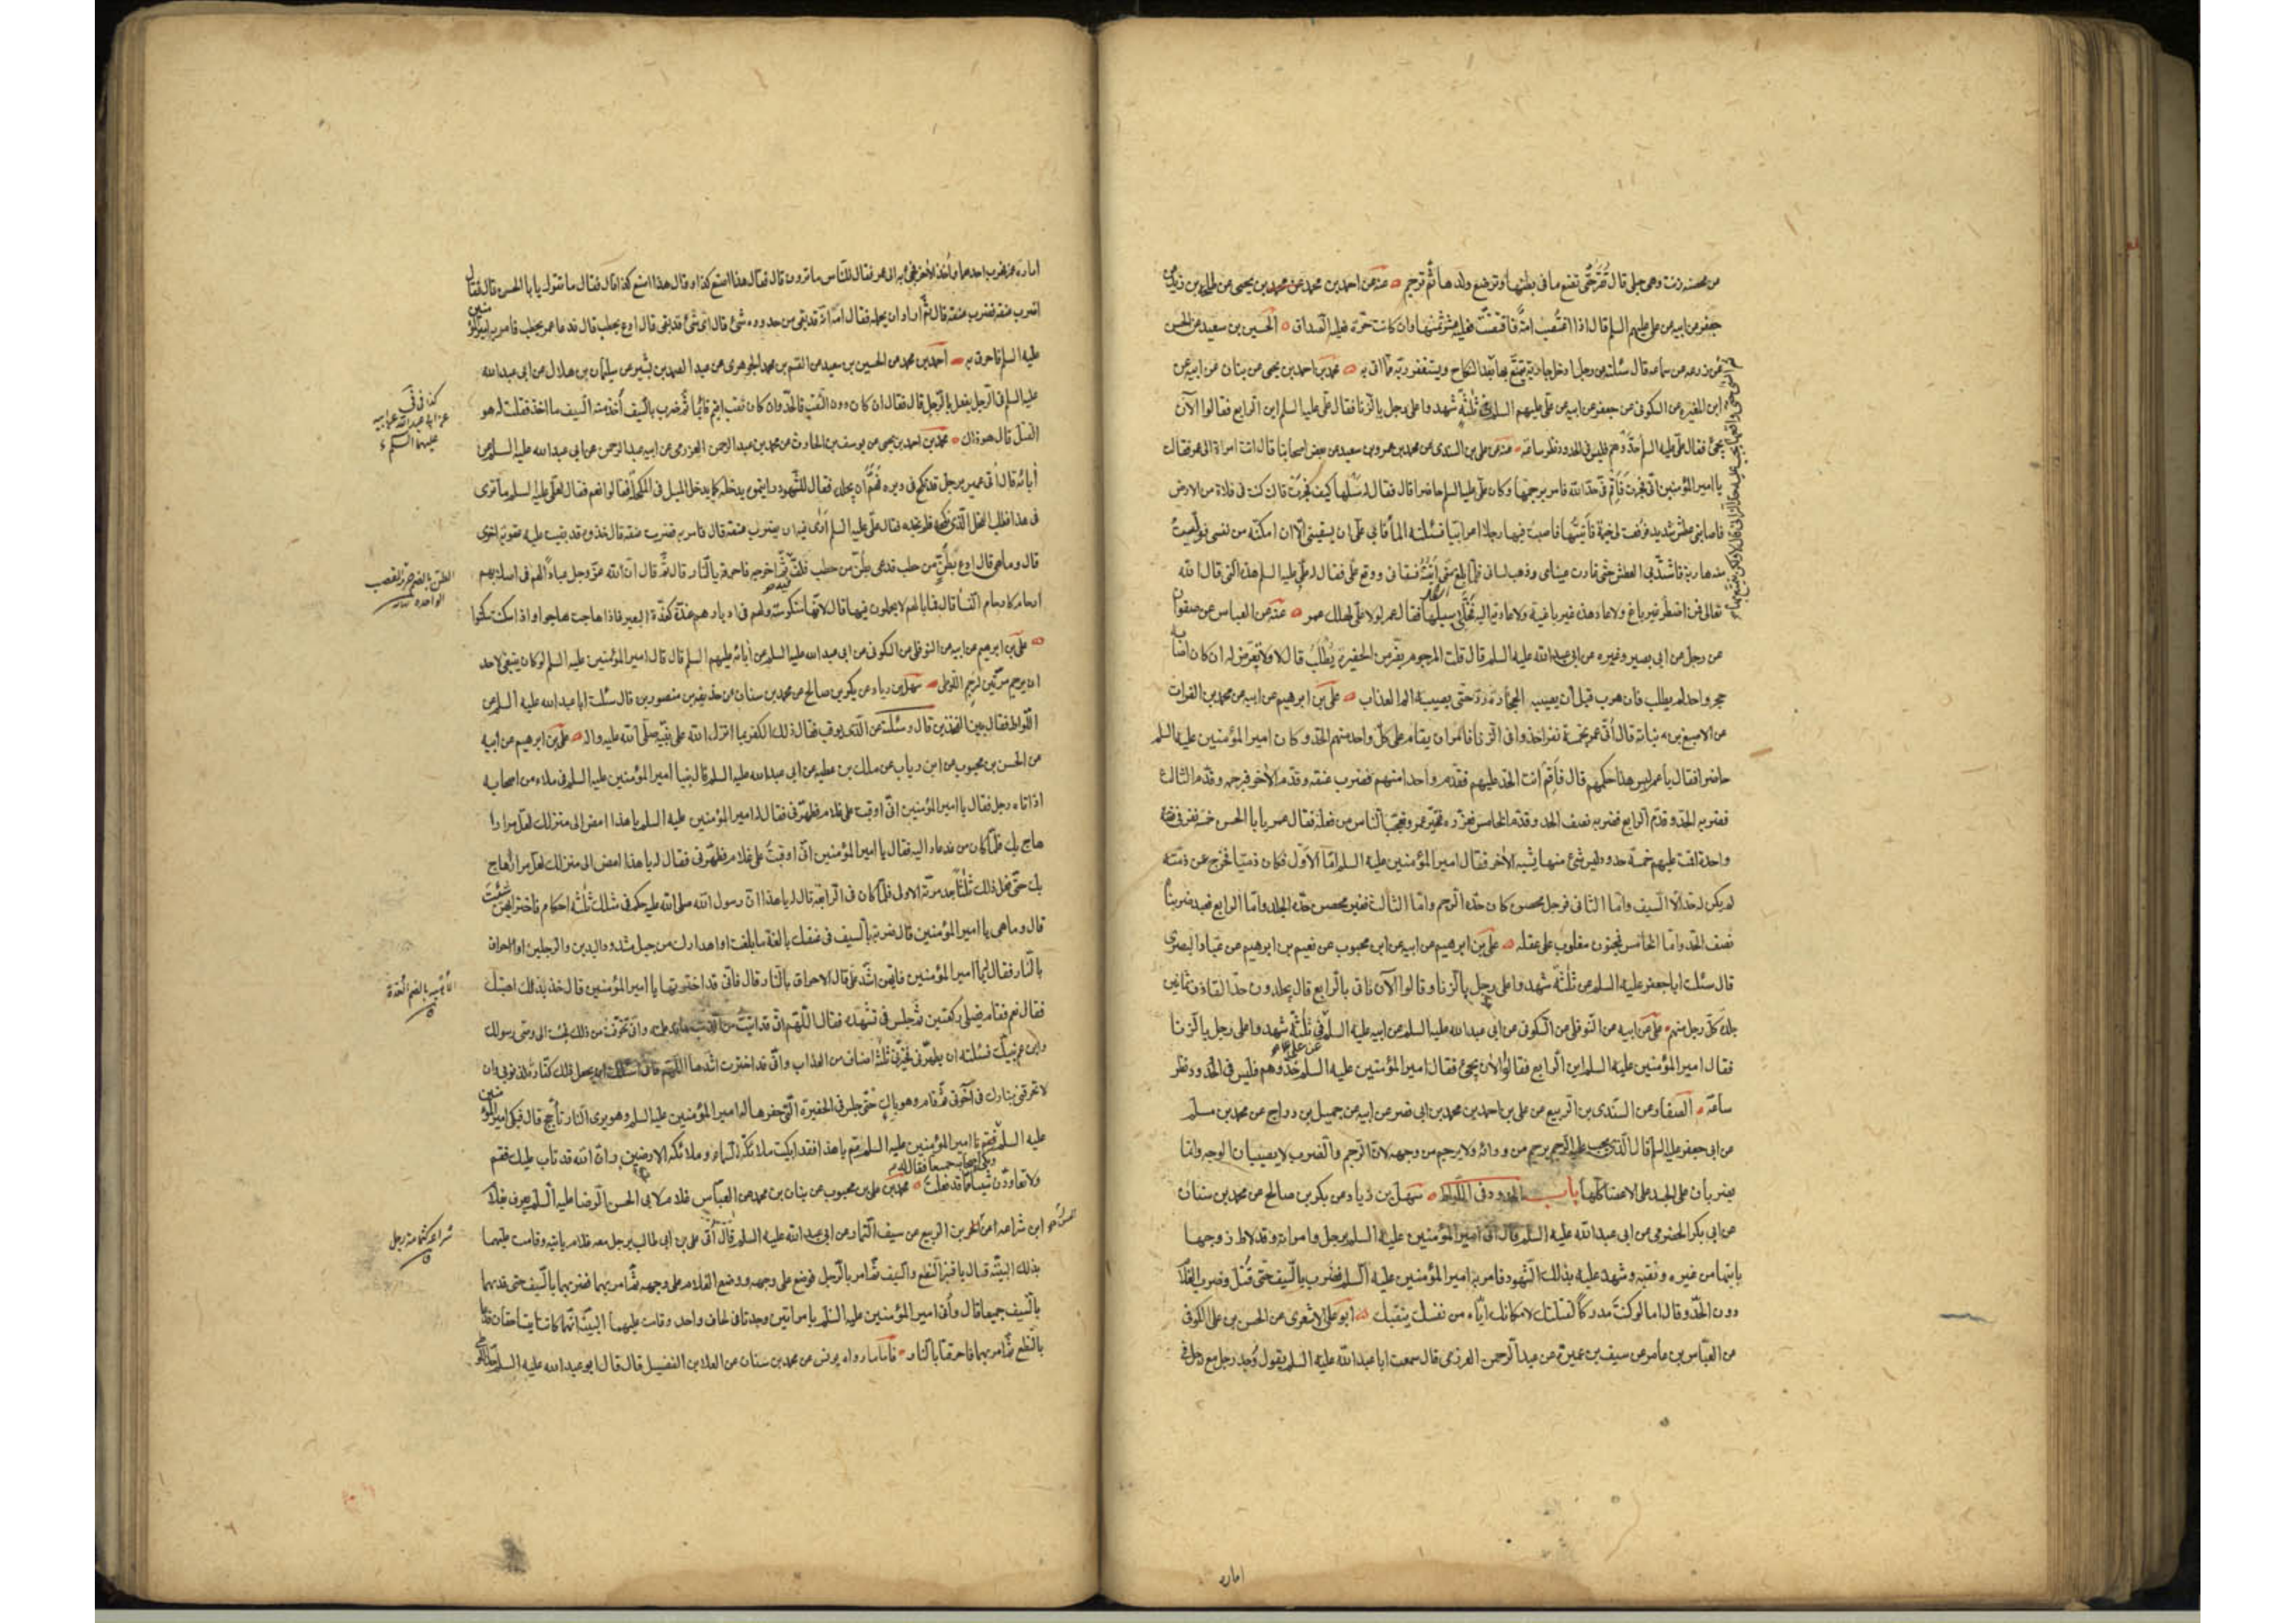 من محصنة زنت وهى حبلى قال تقرّ حتّى تضع ما فى بطنها وترضع ولدها ثم ترجم عنه عن احمد بن محمد عن محمد بن يحيى عن طلحة بن زيد عن
جعفر عن ابيه عن على عليهم السلم قال اذا اغتصب امة فاقتضت فعليه عشر ثمنها وان كانت حرّة فعليه الصداق الحسين بن سعيد عن الحسن
عن زرعه عن سماعه قال سئلته عن رجل ادخل جارية يتمتع بها ثم انسى حتى واقعها يجب عليه حد الزانى قال لا ولكن يتمتع بها بعد النكاح ويستغفر ربه مما اتى به محمد بن احمد بن يحيى عن بنان عن ابيه عن
ابن المغيره عن السكونى عن جعفر عن ابيه عن على عليهم السلم فى ثلثة شهدوا على رجل بالزنا فقال على عليه السلم اين الرابع فقالوا الآن
يجئ فقال على عليه السلم حدّوهم فليس فى الحدود نظر ساعة عنه عن على بن السندى عن محمد بن عمرو بن سعيد عن بعض اصحابنا قال اتت امراة الى عمر فقالت
يا امير المؤمنين انى فجرت فاقم فى حد الله فامر برجمها وكان على عليه السلم حاضرا قال فقال له سلها كيف فجرت قالت كنت فى فلاة من الارض
فاصابنى عطش شديد فرفعت لى خيمة فاتيتها فاصبت فيها رجلا اعرابيا فسئلته الماء فابى على ان يسقينى الا ان امكنه من نفسى فوليت
منه هاربة فاشتد بى العطش حتى غارت عيناى وذهب لسانى فلما بلغ منى اتيته فسقانى ووقع على فقال له على عليه السلم هذه التى قال الله
تعالى فمن اضطر غير باغ ولا عاد هذه غير باغية ولا عادية اليه فخلى سبيلها فقال عمر لولا على لهلك عمر عنه عن العباس عن صفوان
عن رجل عن ابى بصير وغيره عن ابى عبد الله عليه السلم قال قلت المرجوم يفر من الحفيرة يطلب قال لا ولا يعرض له ان كان اصابه
حجر واحد لم يطلب فان هرب قبل ان يصيبه الحجارة ردّ حتى يصيبه الم العذاب على بن ابرهيم عن ابيه عن محمد بن الفرات
عن الاصبغ بن نباتة قال اتى عمر بخمسة نفر اخذوا فى الزنا فامر ان يقام على كل واحد منهم الحد وكان امير المؤمنين عليه السلم
حاضرا فقال يا عمر ليس هذا حكمهم قال فاقم انت الحد عليهم فقدم واحدا منهم فضرب عنقه وقدم الآخر فرجمه وقدم الثالث
فضربه الحد وقدم الرابع فضربه نصف الحد وقدم الخامس فعزره فتحير عمر وتعجب الناس من فعله فقال عمر يا با الحسن خمسة نفر فى قضية
واحدة اقمت عليهم خمسة حدود ليس شئ منها يشبه الآخر فقال امير المؤمنين عليه السلم اما الاول فكان ذميا فخرج عن ذمته
لم يكن له حد الا السيف واما الثانى فرجل محصن كان حده الرجم واما الثالث فغير محصن حده الجلد واما الرابع فعبد ضربناه
نصف الحد واما الخامس فمجنون مغلوب على عقله على بن ابرهيم عن ابيه عن ابن محبوب عن نعيم بن ابرهيم عن عباد البصرى
قال سئلت ابا جعفر عليه السلم عن ثلثة شهدوا على رجل بالزنا وقالوا الآن نأتى بالرابع قال يجلدون حد القاذف ثمانين
جلدة كل رجل منهم على عن ابيه عن النوفلى عن السكونى عن ابى عبد الله عليه السلم عن ابيه عن على فى ثلثة شهدوا على رجل بالزنا
فقال امير المؤمنين عليه السلم اين الرابع فقالوا الآن يجئ فقال امير المؤمنين عليه السلم حدوهم فليس فى الحدود نظر
ساعة الصفار عن السندى بن الربيع عن على بن احمد بن محمد بن ابى نصر عن ابيه عن جميل بن دراج عن محمد بن مسلم
عن ابى جعفر عليه السلم قال الذى يجب عليه الرجم يرجم من ورائه ولا يرجم من وجهه لان الرجم والضرب لا يصيبان الوجه وانما
يضربان على الجسد على الاعضاء كلها باب الحدود فى اللواط سهل بن زياد عن بكر بن صالح عن محمد بن سنان
عن ابى بكر الحضرمى عن ابى عبد الله عليه السلم قال اتى امير المؤمنين عليه السلم برجل وامراته وقد لاط زوجها
بابنها من غيره وثقبه وشهد عليه بذلك الشهود فامر به امير المؤمنين عليه السلم فضرب بالسيف حتى قتل وضرب الغلام
دون الحد وقال اما لو كنت مدركا لقتلتك لامكانك اياه من نفسك يثقبك ابو على الاشعرى عن الحسن بن على الكوفى
عن العباس بن عامر عن سيف بن عميرة عن عبد الرحمن العرزمى قال سمعت ابا عبد الله عليه السلم يقول وجد رجل مع رجل فى
امارة
امارة عمر فهرب احدهما واخذ الآخر فجئ به الى عمر فقال للناس ما ترون قال فقال هذا اصنع كذا وقال هذا اصنع كذا قال فقال ما تقول يا با الحسن قال فقال
اضرب عنقه فضرب عنقه قال ثم اراد ان يحمله فقال امه انه قد بقى من حدوده شئ قال اى شئ قد بقى قال ادع بحطب قال فدعا عمر بحطب فامر به امير المؤمنين
عليه السلم فاحرق به احمد بن محمد عن الحسين بن سعيد عن القسم بن محمد الجوهرى عن عبد الصمد بن بشير عن سليمان بن هلال عن ابى عبد الله
عليه السلم فى الرجل يفعل بالرجل قال فقال ان كان دون الثقب فالحد وان كان ثقب اقيم قائما ثم ضرب بالسيف اخذ منه السيف ما اخذ فقلت له هو
القتل قال هو ذاك محمد بن احمد بن يحيى عن يوسف بن الحارث عن محمد بن عبد الرحمن العرزمى عن ابيه عبد الرحمن عن ابى عبد الله عليه السلم عن
كذا فى
عن ابى عبد الله عن ابيه
عليهما السلم
آبائه قال اتى عمر برجل قد نكح فى دبره فهم ان يجلده فقال للشهود رايتموه يدخله كما يدخل الميل فى المكحلة فقالوا نعم فقال لعلى عليه السلم ما ترى
فى هذا فطلب الفحل الذى نكحه فلم يجده فقال على عليه السلم ارى فيه ان يضرب عنقه قال فامر به فضربت عنقه قال خذوه فقد بقيت عليه عقوبة اخرى
قال وما هى قال ادع بطن من حطب فدعى بطن من حطب فلف فيه ثم اخرجه فاحرقه بالنار قال ثم قال ان الله عز وجل عبادا لهم فى اصلابهم
الطن بالضم حزمة القصب
الواحدة
ارحام كارحام النساء قال فما بالهم لا يحملون فيها قال لانها منكوسة ولهم فى ادبارهم غدة كغدة البعير فاذا هاجت هاجوا واذا سكنت سكنوا
على بن ابرهيم عن ابيه عن النوفلى عن السكونى عن ابى عبد الله عليه السلم عن آبائه عليهم السلم قال قال امير المؤمنين عليه السلم لو كان ينبغى لاحد
ان يرجم مرتين لرجم اللوطى سهل بن زياد عن بكر بن صالح عن محمد بن سنان عن حذيفة بن منصور بن قال سئلت ابا عبد الله عليه السلم عن
اللواط فقال بين الفخذين قال وسئلته عن الذى يوقب فقال ذلك الكفر بما انزل الله على نبيه صلى الله عليه واله على بن ابرهيم عن ابيه
عن الحسن بن محبوب عن ابن رياب عن ملك بن عطيه عن ابى عبد الله عليه السلم قال بينا امير المؤمنين عليه السلم فى ملاء من اصحابه
اذ اتاه رجل فقال يا امير المؤمنين انى اوقبت على غلام فطهرنى فقال له امير المؤمنين عليه السلم يا هذا امض الى منزلك لعل مرارا
هاج بك فلما كان من غد عاد اليه فقال يا امير المؤمنين انى اوقبت على غلام فطهرنى فقال له يا هذا امض الى منزلك لعل مرارا هاج
بك حتى فعل ذلك ثلثا بعد مرته الاولى فلما كان فى الرابعة قال له يا هذا ان رسول الله صلى الله عليه حكم فى مثلك ثلثة احكام فاختر ايهن شئت
قال وما هى يا امير المؤمنين قال ضربة بالسيف فى عنقك بالغة ما بلغت او اهدارك من جبل مشدود اليدين والرجلين او احراق
بالنار فقال يا امير المؤمنين فايهن اشد على قال الاحراق بالنار قال فانى قد اخترتها يا امير المؤمنين قال خذ بذلك اهبتك
الاهبة بالضم العدة
فقال نعم فقام فصلى ركعتين ثم جلس فى تشهده فقال اللهم انى قد اتيت من الذنب ما قد علمته وانى تخوفت من ذلك فجئت الى وصى رسولك
وابن عم نبيك فسئلته ان يطهرنى فخيرنى ثلثة اصناف من العذاب وانى قد اخترت اشدها اللهم فانى اسئلك ان يجعل ذلك كفارة لذنوبى وان
لا تحرقنى بنارك فى آخرتى ثم قام وهو باك حتى جلس فى الحفيرة التى حفرها له امير المؤمنين عليه السلم وهو يرى النار تأجج قال فبكى امير المؤمنين
عليه السلم وبكى اصحابه جميعا فقال له امير المؤمنين عليه السلم قم يا هذا فقد ابكيت ملائكة السماء وملائكة الارضين وان الله قد تاب عليك فقم
ولا تعاودن شيئا مما قد فعلت محمد بن على بن محبوب عن بنان بن محمد عن العباس غلام لابى الحسن الرضا عليه السلم يعرف بغلام
ابن شراعه عن الحسن بن الربيع عن سيف التمار عن ابى عبد الله عليه السلم قال اتى على بن ابى طالب برجل معه غلام يأتيه وقامت عليهما
شراعه كثمامة رجل
بذلك البينة فقال يا قنبر النطع والسيف ثم امر بالرجل فوضع على وجهه ووضع الغلام على وجهه ثم امر بهما فضربهما بالسيف حتى قدهما
بالسيف جميعا قال واتى امير المؤمنين عليه السلم بامراتين وجدتا فى لحاف واحد وقامت عليهما البينة انهما كانتا يتساحقان فدعا
بالنطع ثم امر بهما فاحرقتا بالنار فاما ما رواه يونس عن محمد بن سنان عن العلا بن الفضيل قال قال ابو عبد الله عليه السلم حد اللوطى